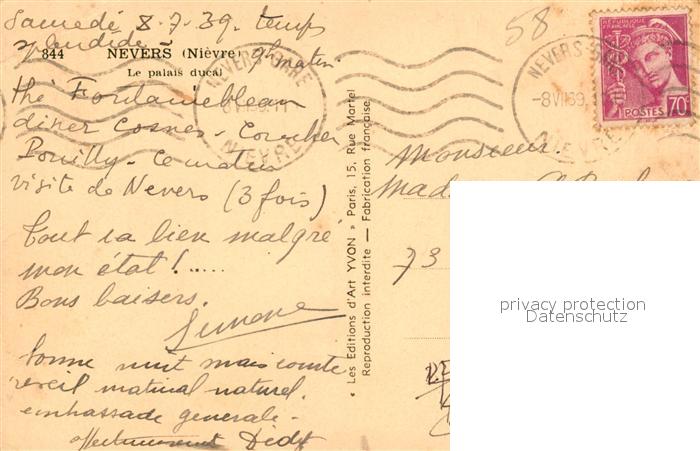 Samedi 8-7-39. temps
splendide
9h matin.
844 NEVERS (Nièvre)
Le palais ducal
thé Fontainebleau
diner Cosnes - Coucher
Pouilly - Ce matin
visite de Nevers (3 fois)
Tout va bien malgré
mon état!.....
Bons baisers.
Simone
bonne nuit mais courte
réveil matinal naturel.
embrassade generale -
affectueusement
« Les Editions d'Art YVON » Paris, 15, Rue Martel
Reproduction interdite — Fabrication française
58
NEVERS GARE
NIEVRE
NEVERS
-8 VII 39
NIEVRE
RÉPUBLIQUE FRANÇAISE
POSTES 70c
Monsieur
Madame
73
privacy protection
Datenschutz